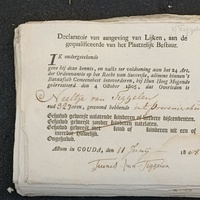 Declaratoir van aangeving van Lijken, aan de
gequalificeerde van het Plaatselijk Bestuur.
IK ondergeteekende
geve bij deze kennis, en zulks ter voldoening aan het 24 Art.
der Ordonnantie op het Recht van Successie, alomme binnen 's
Bataafsch Gemeenebest intevorderen, bij Hun Hoog Mogende
gearresteerd den 4 October 1805, dat Overleden is
Neeltje van Teggelen
oud 82 Jaren, gewoond hebbende
Gehuwd geweest nalatende kinderen of verdere descendenten.
Gehuwd geweest zonder kinderen natelaten.
Gehuwd geweest met kind of kinderen uit en of
eerdere Huwelijk.
Ongehuwd.
Actum in GOUDA, den 11 Junij